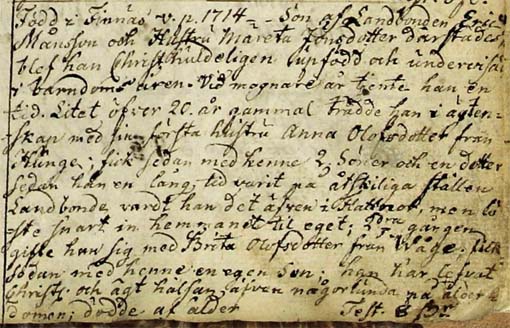 Född i Finnäs v. p. 1714. Son af Landbonden Eric
Månsson och Hustru Mareta Jönsdotter därstädes
blef han Christhuldeligen upfödd och undervisad
i barndoms åren. Vid mognare år tjente han en
tid. Litet öfver 20. år gammal trädde han i ägten-
skap med sin första hustru Anna Olofsdotter från
Klinge; fick sedan med henne 2. Söner och en dotter
sedan han en lång tid varit på åtskilliga ställen
Landbonde vardt han det äfven i men lö-
ste snart in hemmanet til eget; 2dra gången
gifte han sig med Brita Olofsdotter från Våge. fick
sedan med henne en egen Son; han har lefvat
Christl. och ägt hälsan jäfven någorlunda på ålder-
domen; dödde af ålder Test.